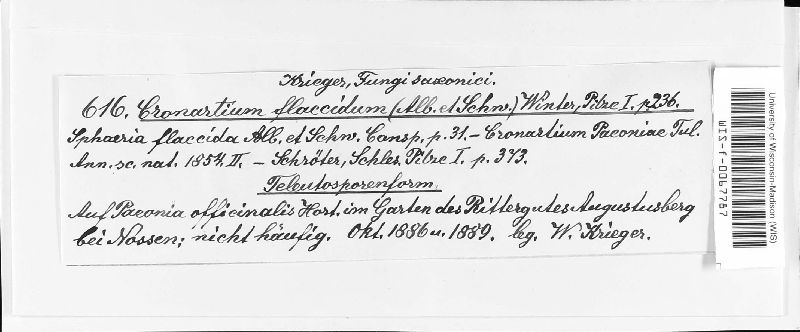 Krieger, Fungi saxonici.
616. Cronartium flaccidum (Alb. et Schw.) Winter, Pilze I. p. 236.
Sphaeria flaccida Alb. et Schw. Consp. p. 31. – Cronartium Paeoniae Tul.
Ann. sc. nat. 1854. II. – Schröter, Schles. Pilze I. p. 373.
Teleutosporenform.
Auf Paeonia officinalis Hort. im Garten des Rittergutes Augustusberg
bei Nossen; nicht häufig. Okt. 1886 u. 1889. leg. W. Krieger.
University of Wisconsin-Madison (WIS)
WIS-f-0067767